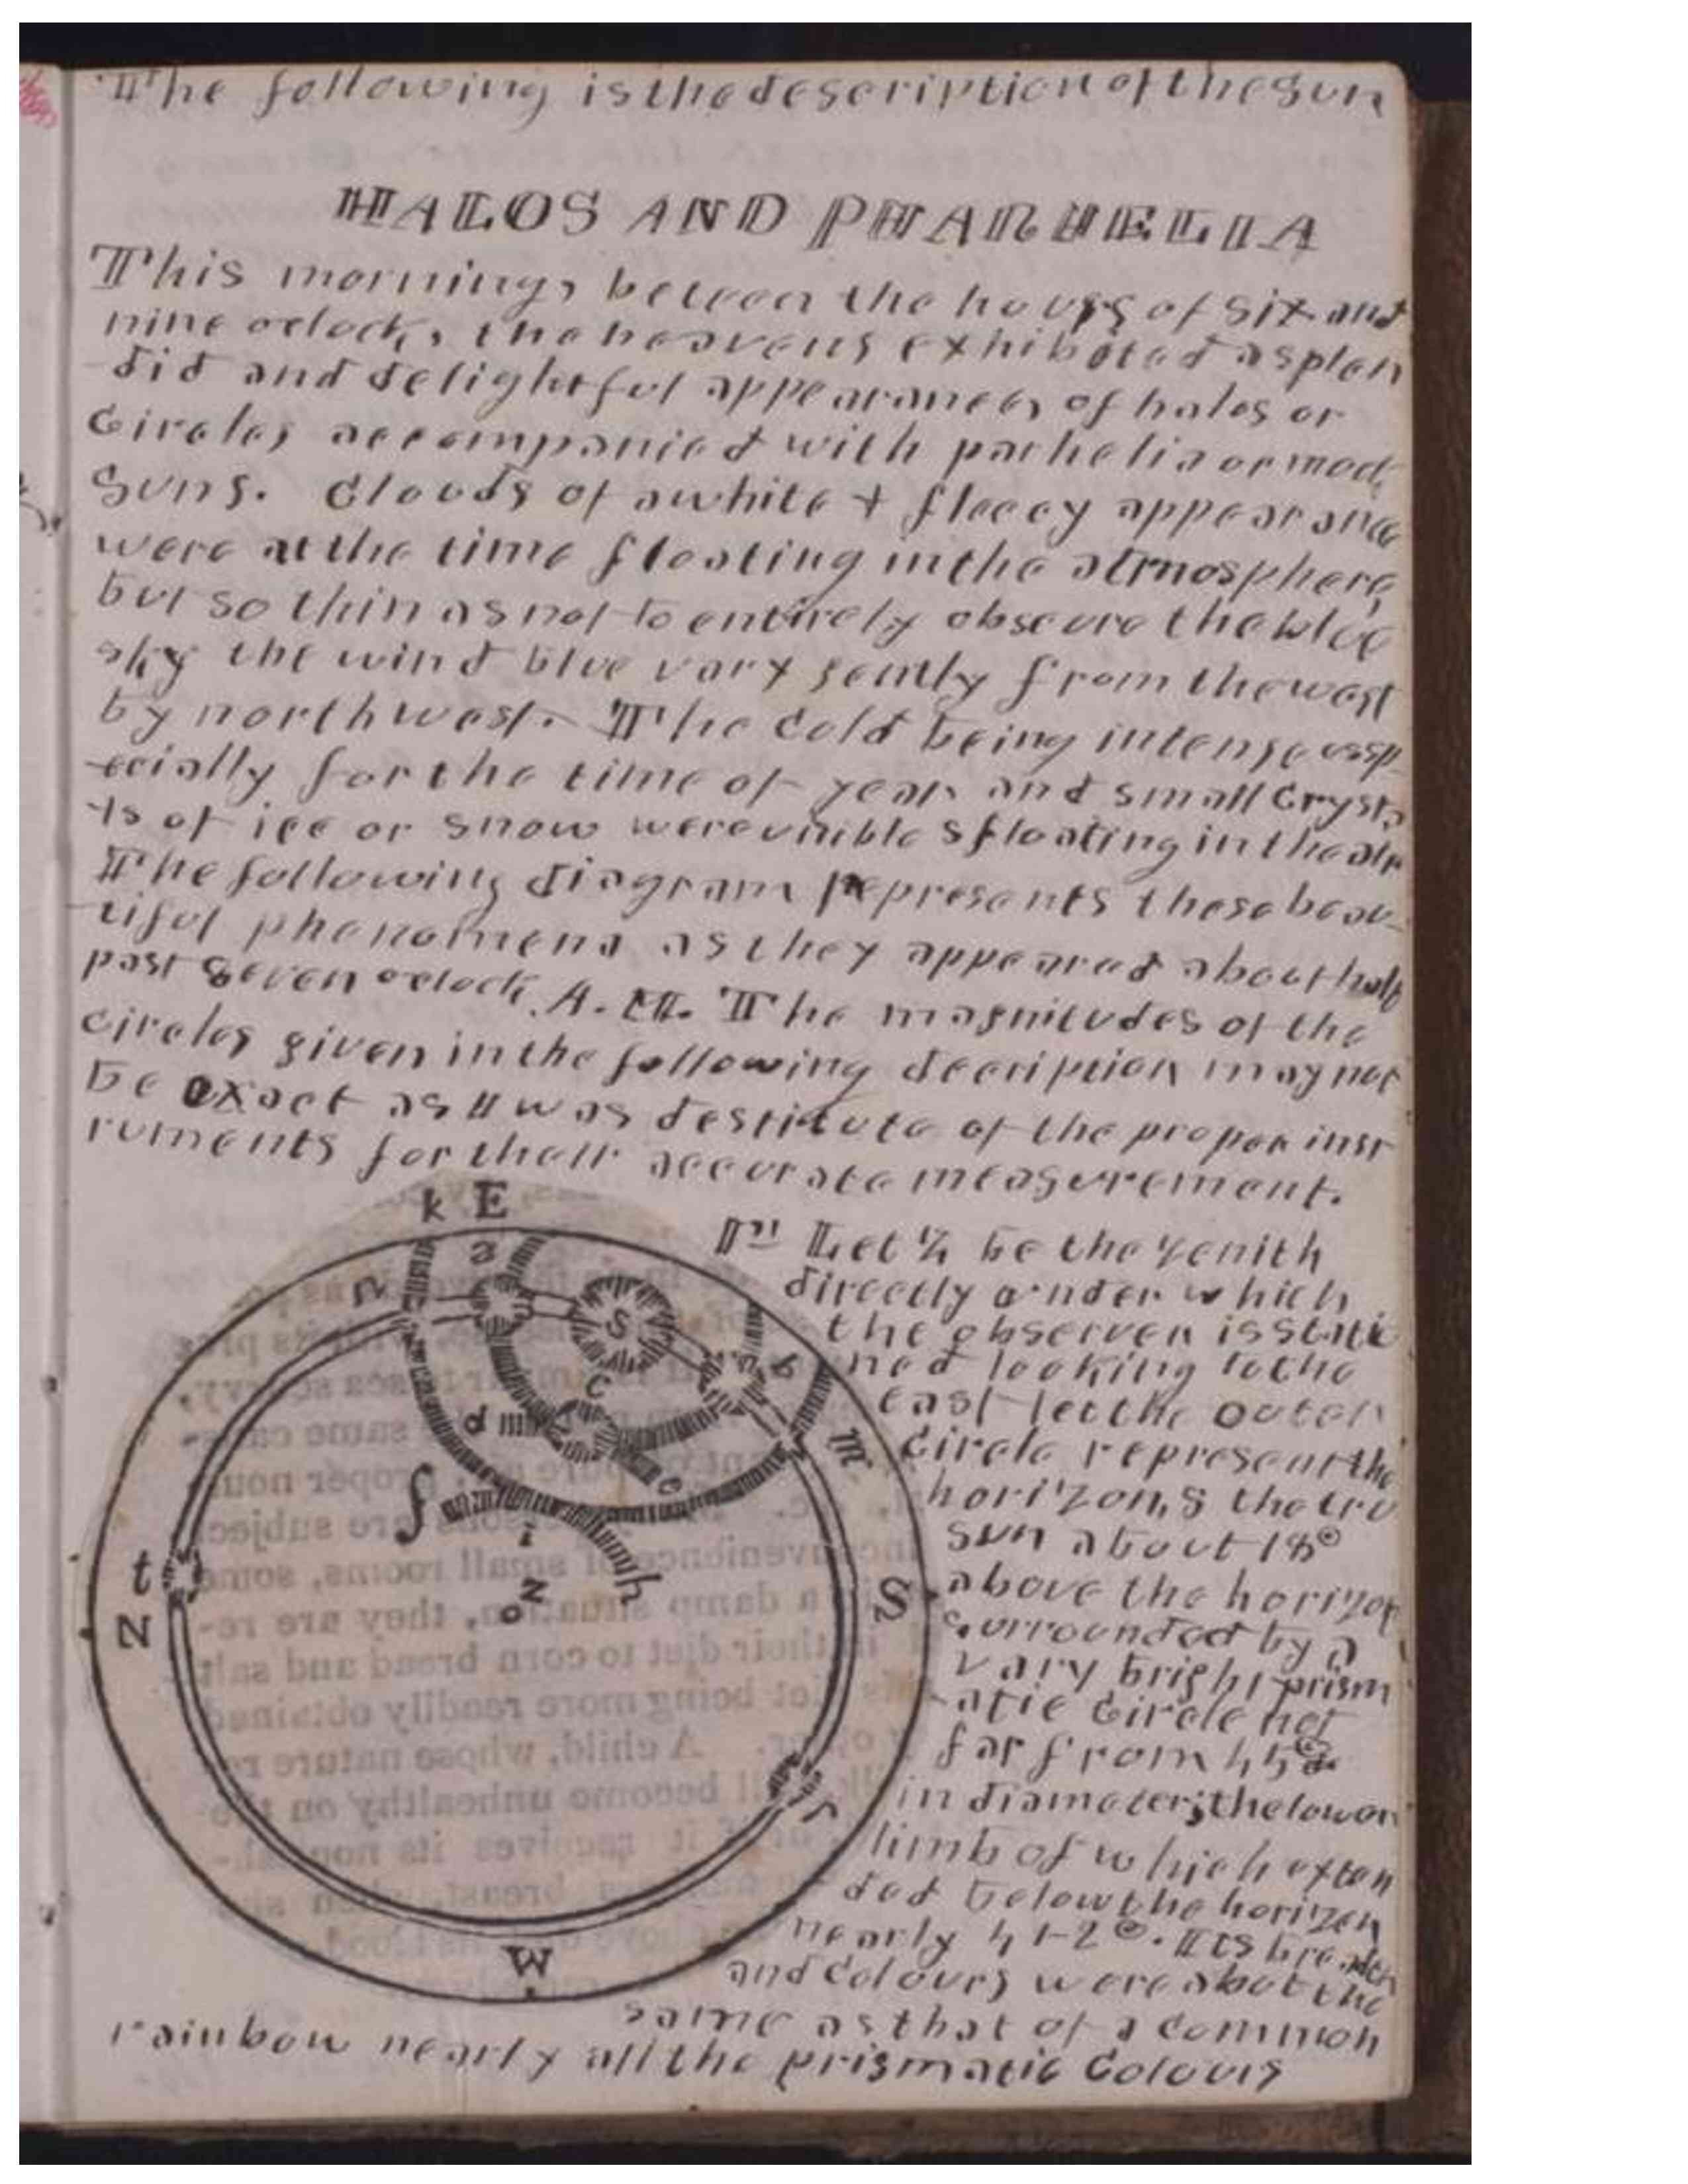 The following is the description of the sun
HALOS AND PHARHELIA
This morning, beteen the hours of six and
nine oclock, the heavens exhiboted a splen
did and delightful appearances of halos or
Circles accompanied with parhelia or mock
Suns. Clouds of a white + fleecy appearance
were at the time floating in the atmosphere,
but so thin as not to entirely obscure the blue
sky the wind blue vary gently from the west
by northwest. The Cold being intense essp
ecially for the time of year and small Crysta
ls of ice or snow were visible s floating in the air
The following diagram represents these beau-
tiful phenomena as they appeared about half
past Seven oclock, A. M. The magnitudes of the
circles given in the following decription may not
be exact as I was destitute of the proper inst
ruments for their accurate measurement.
k E
n a S
1st Let Z be the Zenith
directly under which
the observer is static
ned looking to the
b
c
east let the outer
d
m
Circle represent the
e
horizon, S the tru
f
sun about 18°
i
h
above the horizon
t
Z
o
S
N
surrounded by a
vary bright prism
-atic Circle not
far from 45°
r
in diameter; the lower
limb of which exten
ded below the horizen
nearly 4 1-2°. Its breadth
W
and Colours were about the
same as that of a common
rainbow nearly all the prismatic Colours